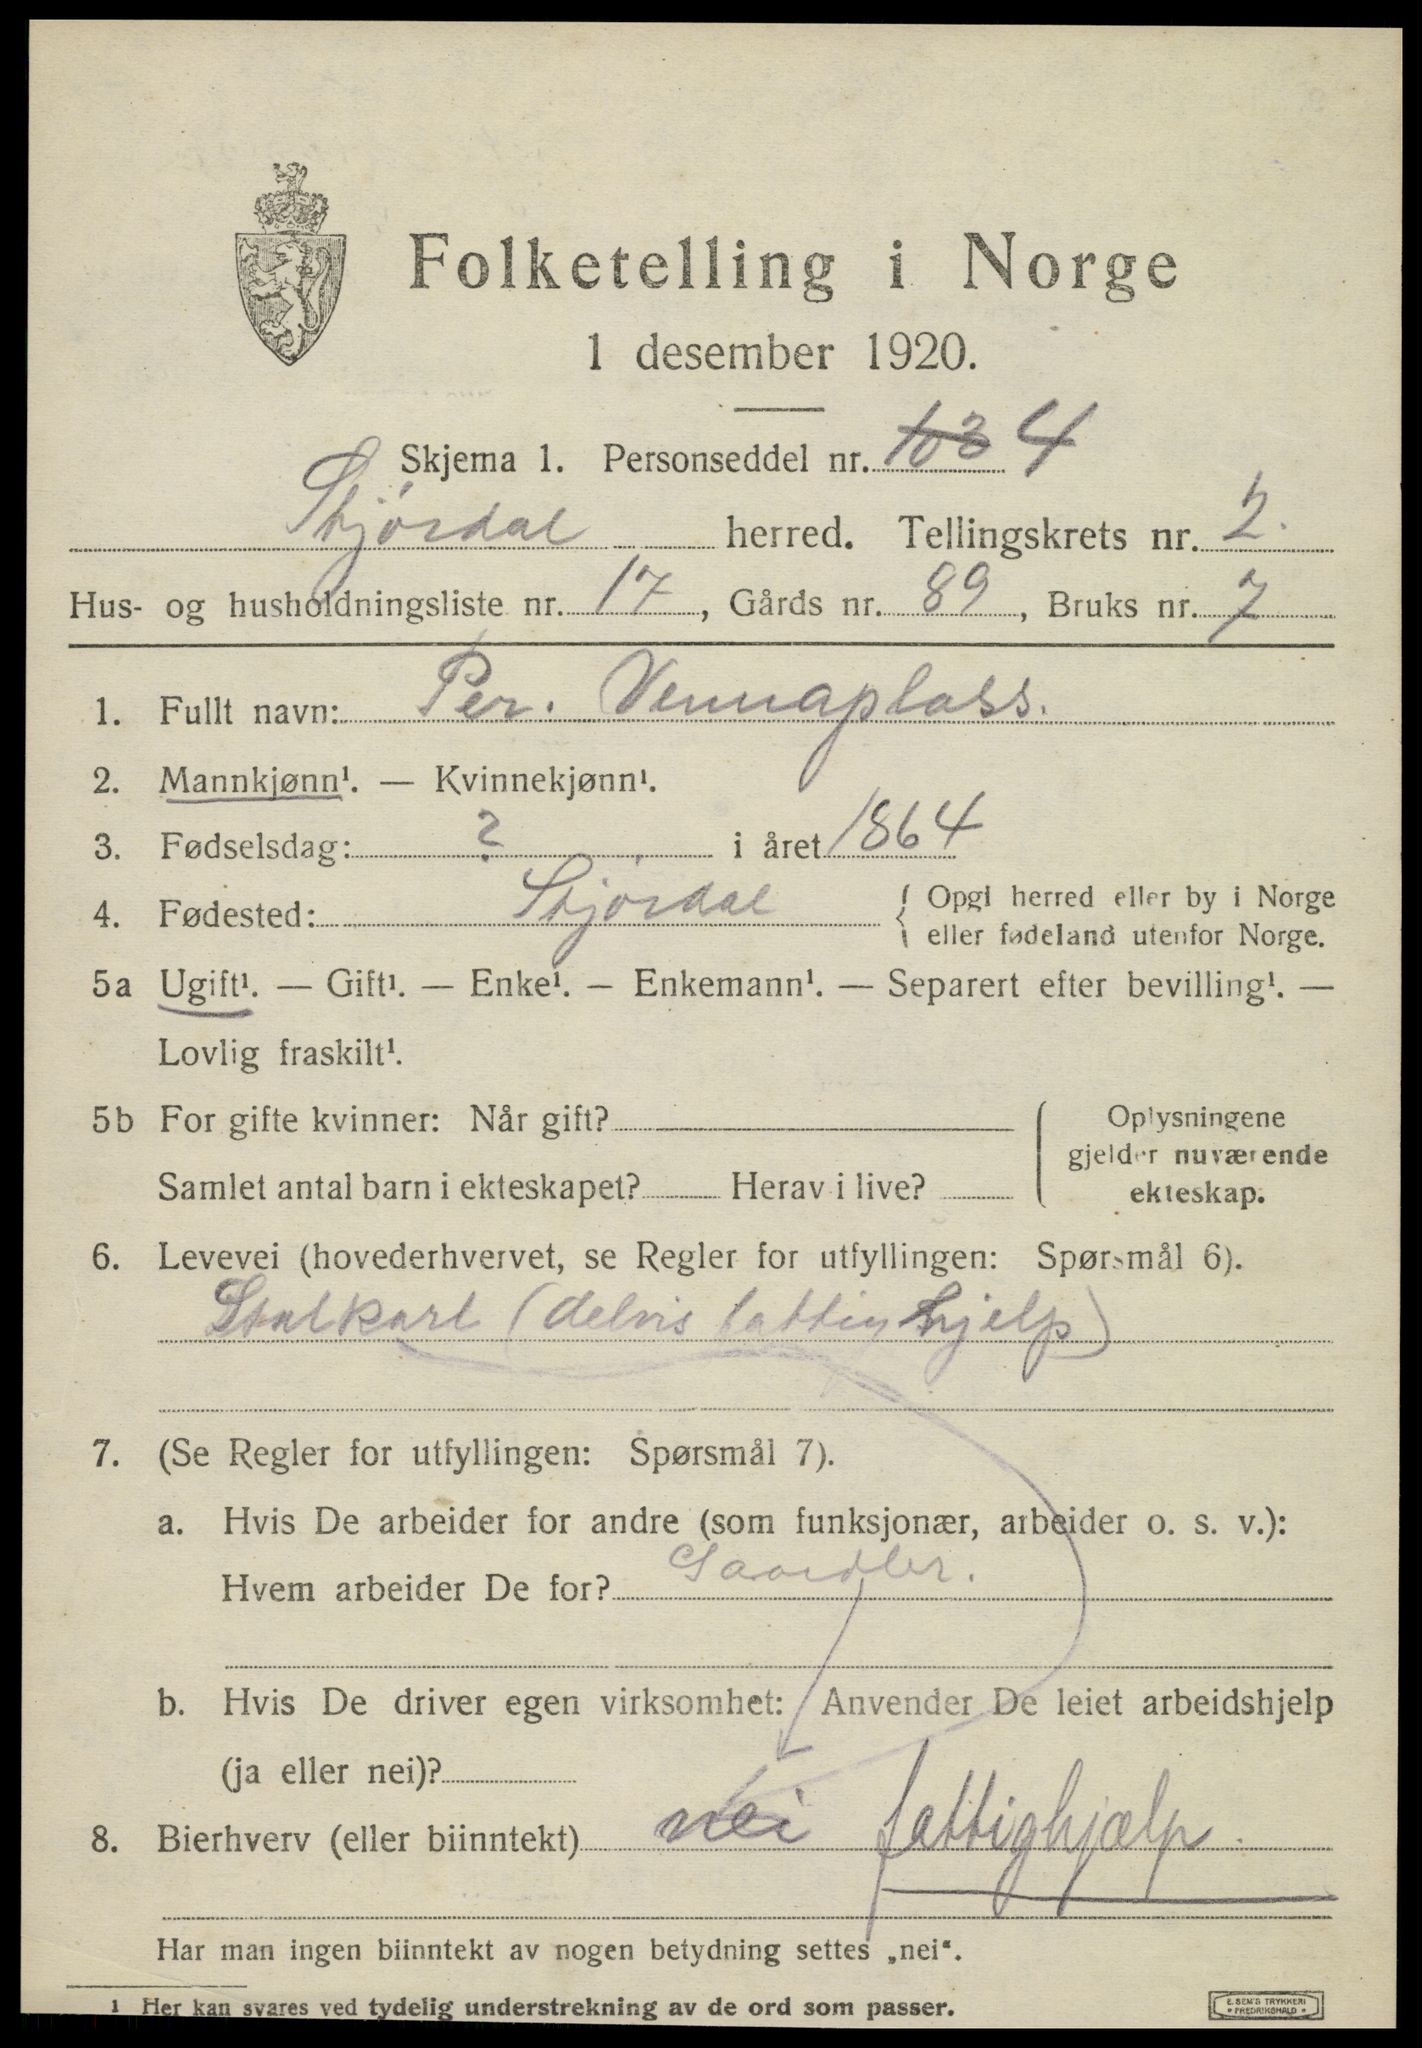 Folketelling i Norge
1 desember 1920.
Skjema 1. Personseddel nr. 103 4
Stjørdal herred. Tellingskrets nr. 2.
Hus- og husholdningsliste nr. 17, Gårds nr. 89, Bruks nr. 7
1. Fullt navn: Per. Vennaplass.
2. Mannkjønn¹. — Kvinnekjønn¹.
3. Fødselsdag: ? i året 1864
4. Fødested: Stjørdal { Opgi herred eller by i Norge
eller fødeland utenfor Norge.
5a Ugift¹. — Gift¹. — Enke¹. — Enkemann¹. — Separert efter bevilling¹. —
Lovlig fraskilt¹.
5b For gifte kvinner: Når gift? Oplysningene
gjelder nuværende
Samlet antal barn i ekteskapet? Herav i live? ekteskap.
6. Levevei (hovederhvervet, se Regler for utfyllingen: Spørsmål 6).
Stalkarl (delvis fattighjelp)
7. (Se Regler for utfyllingen: Spørsmål 7).
a. Hvis De arbeider for andre (som funksjonær, arbeider o. s. v.):
Hvem arbeider De for?
b. Hvis De driver egen virksomhet: Anvender De leiet arbeidshjelp
(ja eller nei)?
8. Bierhverv (eller biinntekt) nei fattighjælp.
Har man ingen biinntekt av nogen betydning settes „nei“.
¹ Her kan svares ved tydelig understrekning av de ord som passer.
E. SEM'S TRYKKERI
* FREDRIKSHALD *